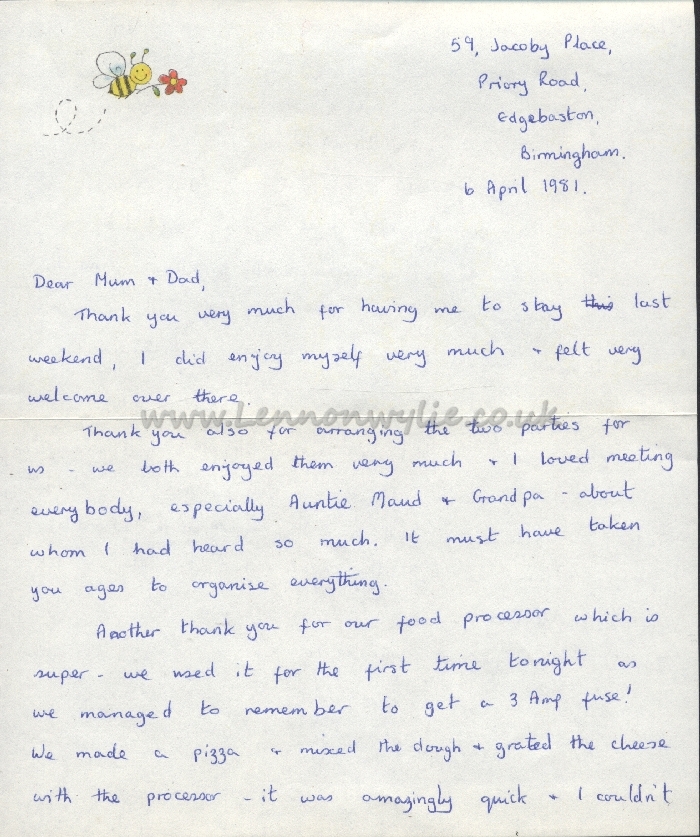 59, Jacoby Place,
Priory Road,
Edgebaston,
Birmingham.
6 April 1981.
Dear Mum + Dad,
Thank you very much for having me to stay this last
weekend, I did enjoy myself very much + felt very
welcome over there.
www.Lennonwylie.co.uk
Thank you also for arranging the two parties for
us - we both enjoyed them very much + I loved meeting
everybody, especially Auntie Maud + Grandpa - about
whom I had heard so much. It must have taken
you ages to organise everything.
Another thank you for our food processor which is
super - we used it for the first time tonight as
we managed to remember to get a 3 Amp fuse!
We made a pizza + mixed the dough + grated the cheese
with the processor - it was amazingly quick + I couldn't